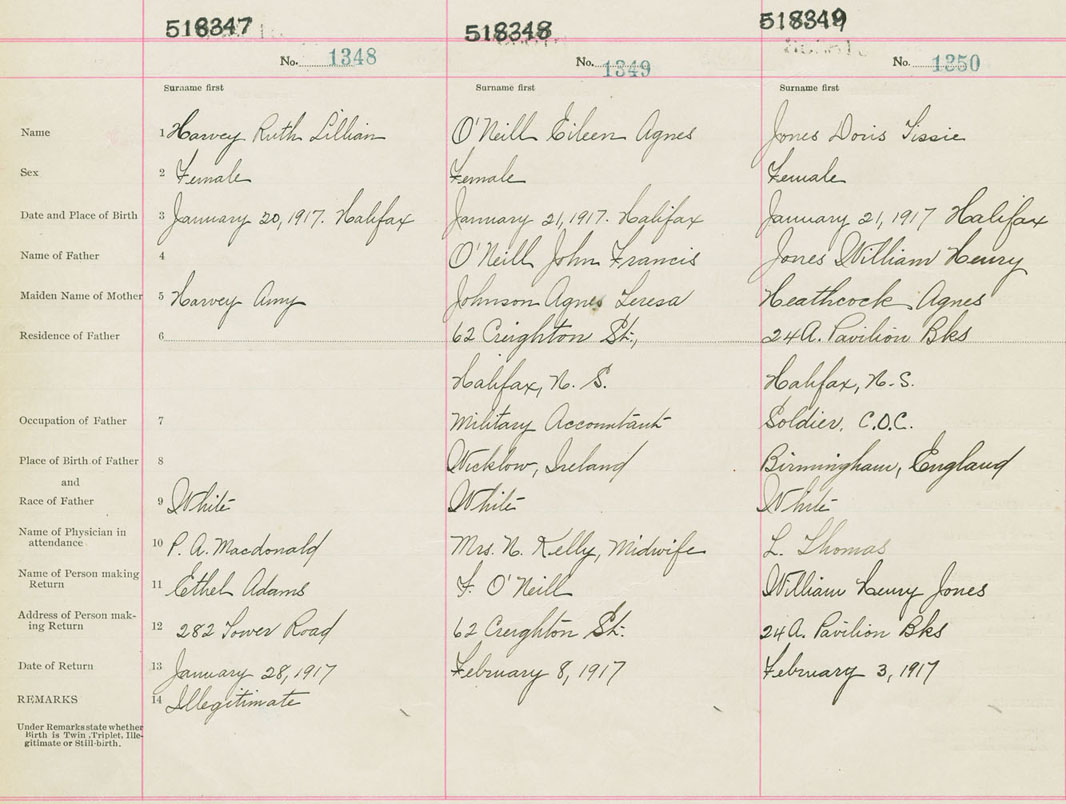 518347 518348 518349
No. 1348 No. 1349 No. 1350
Surname first Surname first Surname first
Name 1 Harvey Ruth Lillian O'Neill Eileen Agnes Jones Doris Tissie
Sex 2 Female Female Female
Date and Place of Birth 3 January 20, 1917. Halifax January 21, 1917. Halifax January 21, 1917 Halifax
Name of Father 4 O'Neill John Francis Jones William Henry
Maiden Name of Mother 5 Harvey Amy Johnson Agnes Teresa Heathcock Agnes
Residence of Father 6 62 Creighton St., 24A. Pavilion Bks
Halifax, N. S. Halifax, N. S.
Occupation of Father 7 Military Accountant Soldier, C.O.C.
Place of Birth of Father 8 Wicklow, Ireland Birmingham, England
and
Race of Father 9 White White White
Name of Physician in
attendance 10 P. A. Macdonald Mrs. N. Kelly, Midwife L. Thomas
Name of Person making
Return 11 Ethel Adams F. O'Neill William Henry Jones
Address of Person mak-
ing Return 12 282 Tower Road 62 Creighton St. 24A. Pavilion Bks
Date of Return 13 January 28, 1917 February 8, 1917 February 3, 1917
REMARKS 14 Illegitimate
Under Remarks state whether
Birth is Twin, Triplet, Ille-
gitimate or Still-birth.